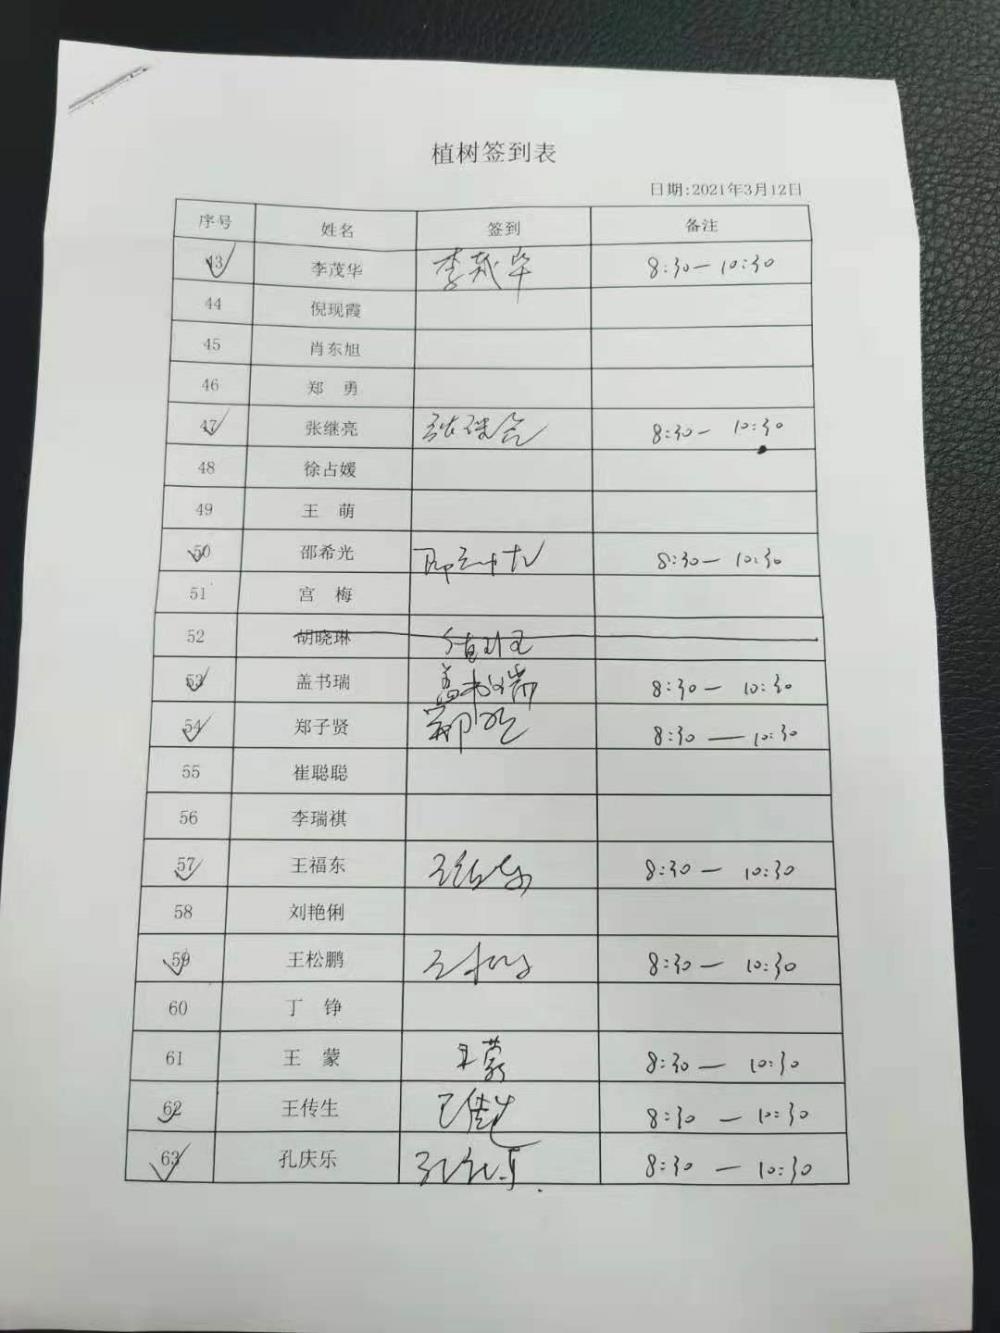 植树签到表
日期:2021年3月12日
序号 姓名 签到 备注
43 李茂华 李茂华 8:30—10:30
44 倪现霞
45 肖东旭
46 郑 勇
47 张继亮 张继亮 8:30— 10:30
48 徐占媛
49 王 萌
50 邵希光 8:30— 10:30
51 宫 梅
52 胡晓琳
53 盖书瑞 盖书瑞 8:30— 10:30
54 郑子贤 8:30 — 10:30
55 崔聪聪
56 李瑞祺
57 王福东 王福东 8:30 — 10:30
58 刘艳俐
59 王松鹏 王松鹏 8:30— 10:30
60 丁 铮
61 王 蒙 王蒙 8:30 — 10:30
62 王传生 8:30 — 10:30
63 孔庆乐 孔庆乐 8:30 — 10:30